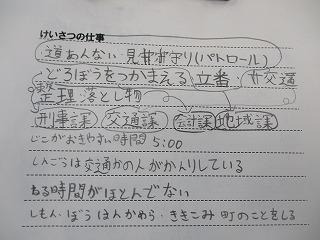 けいさつの仕事
道あんない・見守り(パトロール)
どろぼうをつかまえる 立番 交通
整理 落とし物
刑事課 交通課 会計課 地域課
じこがおきやすい時間 5:00
しんごうは交通かの人がかんりしている
ねる時間がほとんどない
しもん・ぼうはんかめら・ききこみ 町のことをしる